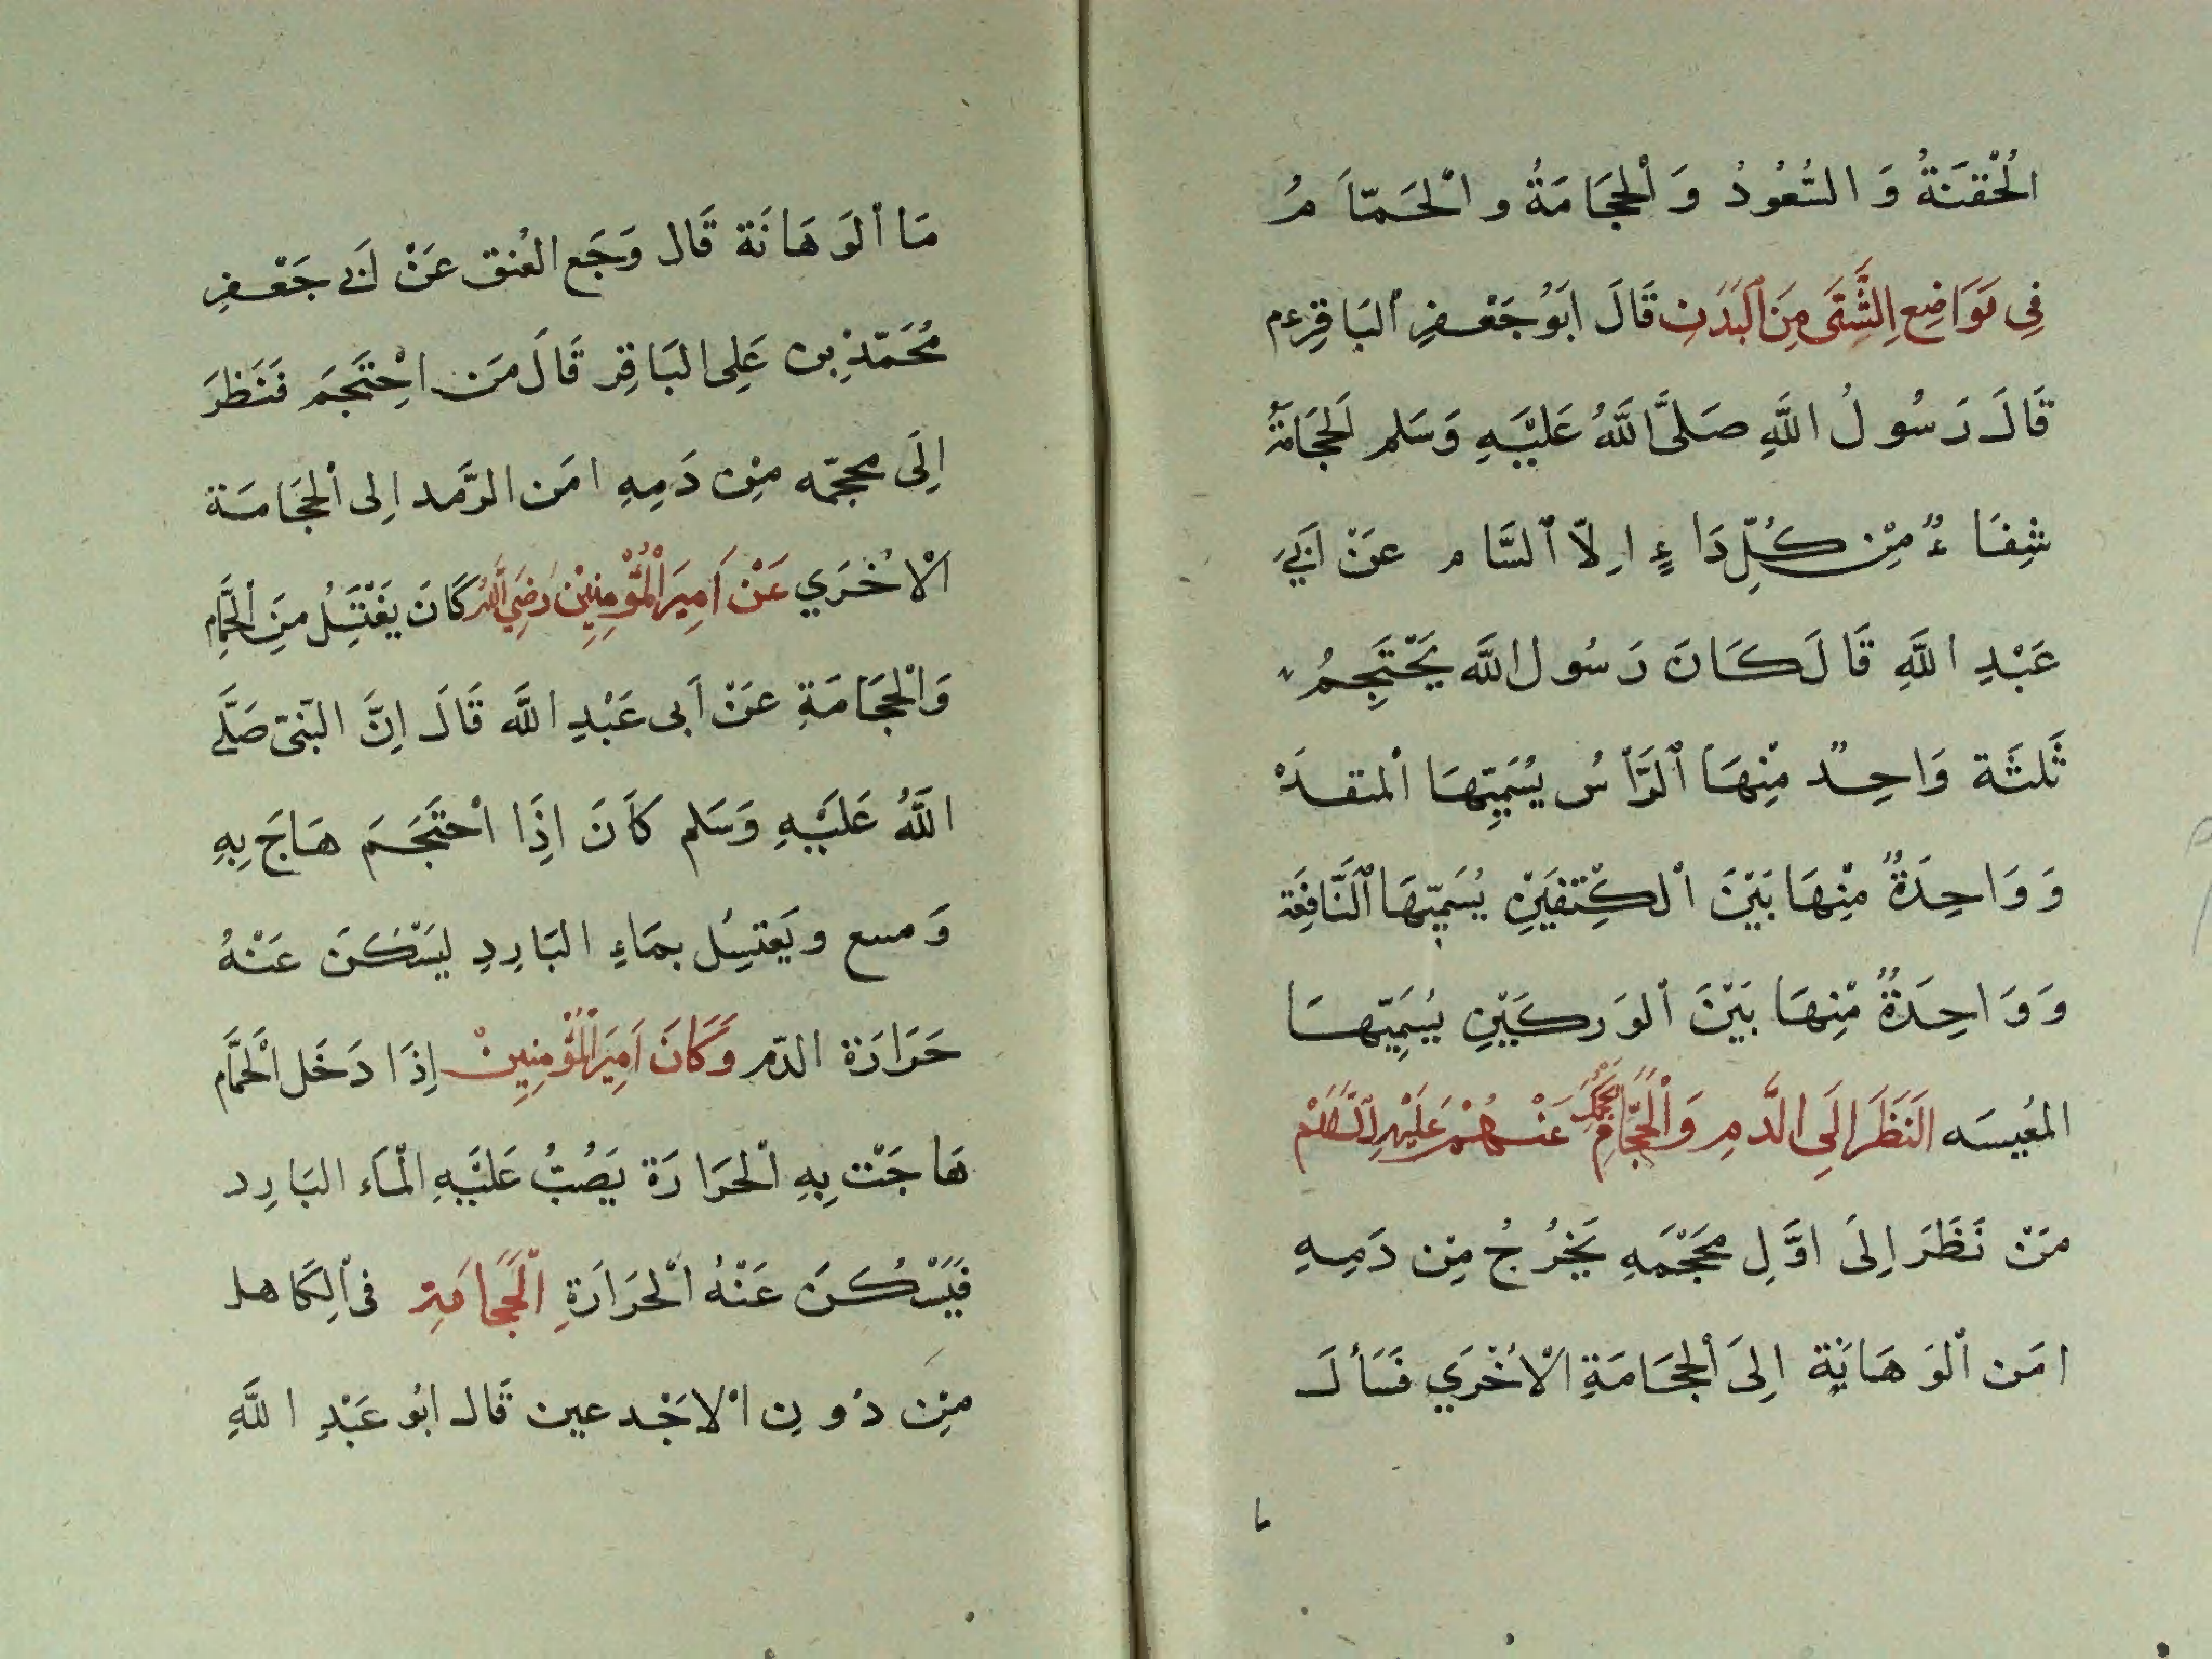 الْحُقْنَةُ وَ التُّعُودُ وَ الْحِجَامَةُ و الْحَمّاَ مُ
فِى مَوَاضِعِ الشَّتَى مِنَ الْبَدَنِ قَالَ اَبُو جَعْفِرِ الْبَاقِرِ ع م
قَالَ رَسُولُ اللَّهِ صَلَّى اللَّهُ عَلَيْهِ وَسَلم لَحِجَامَةُ
شِفَا ءٌ مِّنْ كُلِّ دَا ءٍ اِ لّا اَلسَّام عَنْ اَبِيْ
عَبْدِ اللَّهِ قَالَ كَانَ رَسُول اللَّه يَحْتَجِمُ
ثَلثَة وَاحِدٌ مِنْهَا اَلرَّأسُ يُسَمِّيهَا اْلمتقدَهْ
وَ وَاحِدَةٌ مِّنْهَا بَيْنَ الْكِتْفَيْنِ يُسَمِّيهَا اَلنَّافِعَة
وَ وَاحِدَةٌ مِّنْهَا بَيْنَ الْوَرِكَيْنِ يُسَمِّيهَا
المغيسَه النَظَرَ اِلَى الدَّمِ وَ الْحَجَّامِ عَنْهُمْ عَلَيْهِ السَّلَامْ
مَنْ نَظَرَ اِلَى اوَّلِ مَحْجَمَهِ يَخْرُجُ مِن دَمِهِ
امَن اْلوَ هَايَة اِلىَ الْحِجَامَةِ الْاُخْرَي فَسَأ لَ
مَا اْلوَ هَا نَة قَال وَجَع العُنق عَنْ اَبے جَعْفرِ
مُحَمّدِ بن عَلِى البَاقِر قَالَ مَن احْتَجَم فَنَظَرَ
اِلَى محجّمه مِن دَمِهِ امَن الرَّمد اِلى الْحِجَامَة
الْاُخْرَي عَنْ اَمِيرَ الْمُؤْمِنِيْن رَضِىَ اللَّهُ كَانَ يَغْتَسِلُ مِنَ الْحَمَّامِ
وَالْحِجَامَةِ عَنْ اَبى عَبْدِ اللَّه قَالَ اِنَّ النّبىّ صَلَّے
اللَّهُ عَلَيْهِ وَسَلم كَانَ اِذَا احْتَجَمَ هَاجَ بِهِ
وَ مسع و يَغتسِل بمَاءِ البَارِدِ لِيَسْكنَ عَنْهُ
حَرَارَة الدّم وَكَانَ اَمِيرَ الْمُؤْمِنِيِنْ اِذَا دَخَل الْحَمَّام
هَا جَتْ بِهِ الْحَرَا رَة يَصُبُّ عَلَيْهِ الْمَاء البَارِد
فَيَسْكُنَ عَنْهُ الْحَرَارَةِ الْحِجَامَتِ فى الِكَاهل
مِن دُونِ الْاخْدعين قَال ابُو عَبْدِ اللَّهِ
ما